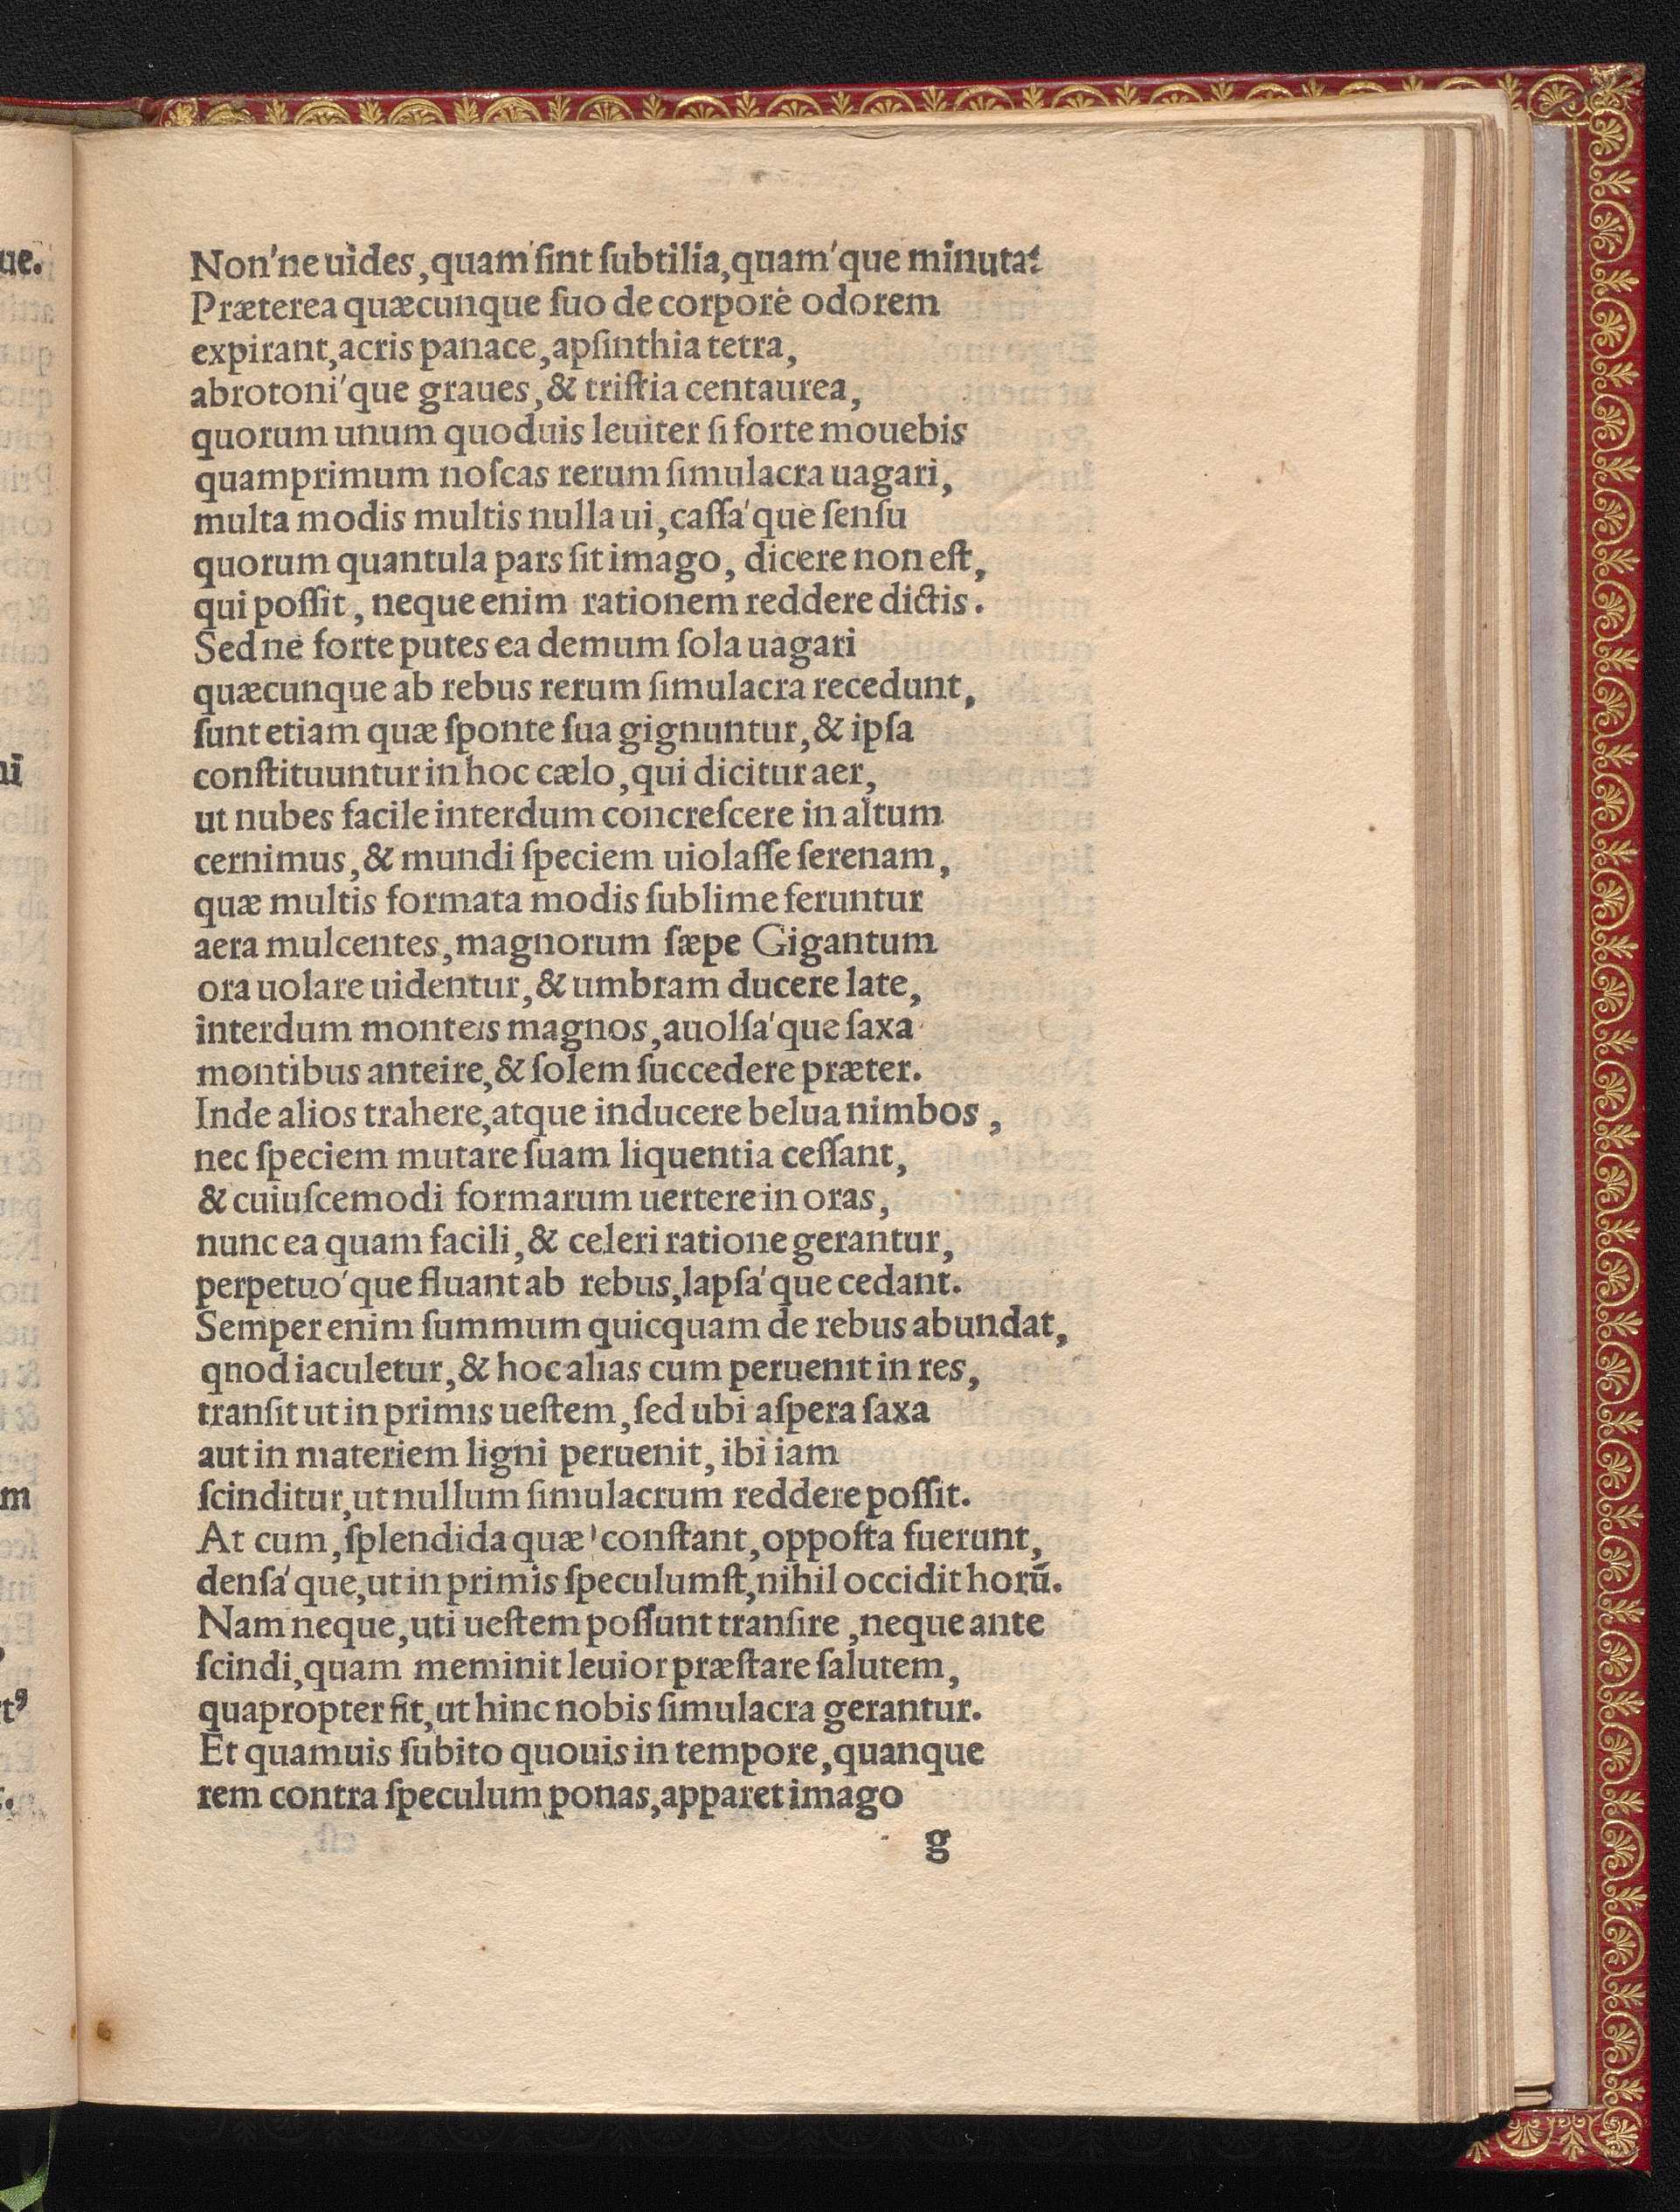 Non'ne uides, quam ſint ſubtilia, quam'que minuta?
Præterea quæcunque ſuo de corpore odorem
expirant, acris panace, apſinthia tetra,
abrotoni'que graues, & triſtia centaurea,
quorum unum quoduis leuiter ſi forte mouebis
quamprimum noſcas rerum ſimulacra uagari,
multa modis multis nulla ui, caſſa'que ſenſu
quorum quantula pars ſit imago, dicere non eſt,
qui poſſit, neque enim rationem reddere dictis.
Sed ne forte putes ea demum ſola uagari
quæcunque ab rebus rerum ſimulacra recedunt,
ſunt etiam quæ ſponte ſua gignuntur, & ipſa
conſtituuntur in hoc cælo, qui dicitur aer,
ut nubes facile interdum concreſcere in altum
cernimus, & mundi ſpeciem uiolaſſe ſerenam,
quæ multis formata modis ſublime feruntur
aera mulcentes, magnorum ſæpe Gigantum
ora uolare uidentur, & umbram ducere late,
interdum monteis magnos, auolſa'que ſaxa
montibus anteire, & ſolem ſuccedere præter.
Inde alios trahere, atque inducere belua nimbos,
nec ſpeciem mutare ſuam liquentia ceſſant,
& cuiuſcemodi formarum uertere in oras,
nunc ea quam facili, & celeri ratione gerantur,
perpetuo'que fluant ab rebus, lapſa'que cedant.
Semper enim ſummum quicquam de rebus abundat,
qnod iaculetur, & hoc alias cum peruenit in res,
tranſit ut in primis ueſtem, ſed ubi aſpera ſaxa
aut in materiem ligni peruenit, ibi iam
ſcinditur, ut nullum ſimulacrum reddere poſſit.
At cum, ſplendida quæ' conſtant, oppoſta fuerunt,
denſa'que, ut in primis ſpeculumſt, nihil occidit horū.
Nam neque, uti ueſtem poſſunt tranſire, neque ante
ſcindi, quam meminit leuior præſtare ſalutem,
quapropter fit, ut hinc nobis ſimulacra gerantur.
Et quamuis ſubito quouis in tempore, quanque
rem contra ſpeculum ponas, apparet imago
g